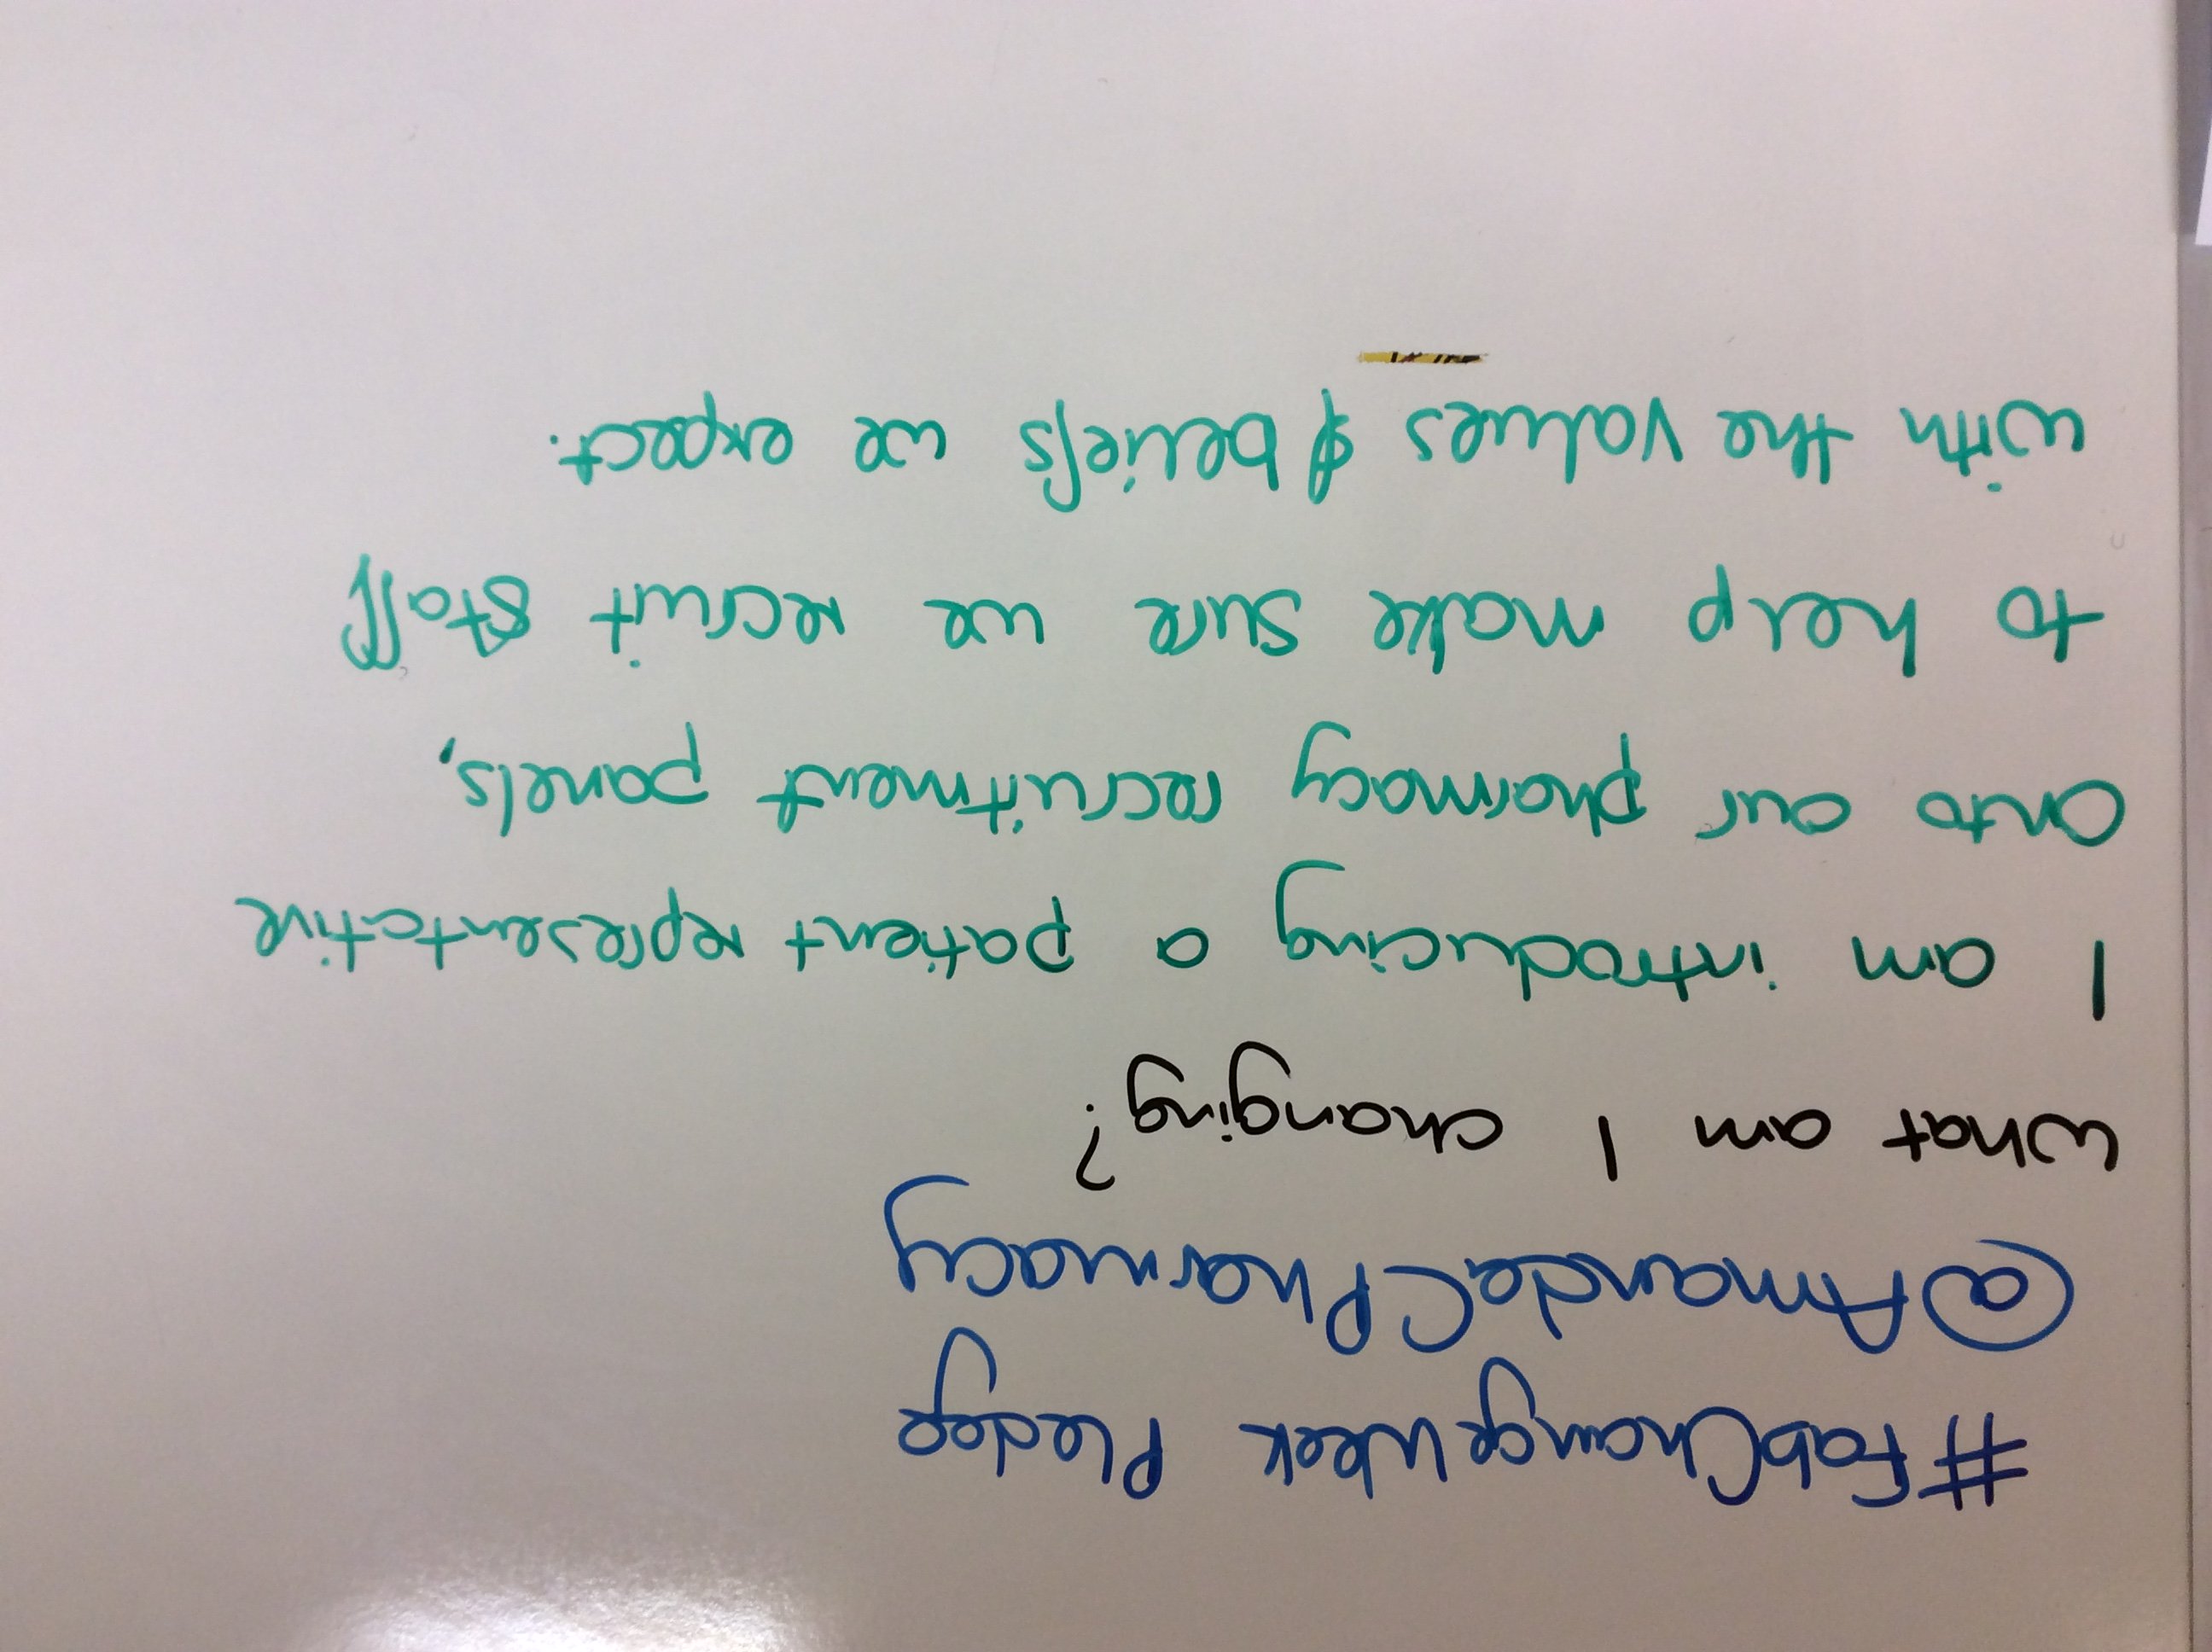 #FabChangeWeek Pledge
@AmandaCPharmacy
What am I changing?
I am introducing a patient representative
onto our pharmacy recruitment panels,
to help make sure we recruit staff
with the values & beliefs we expect.